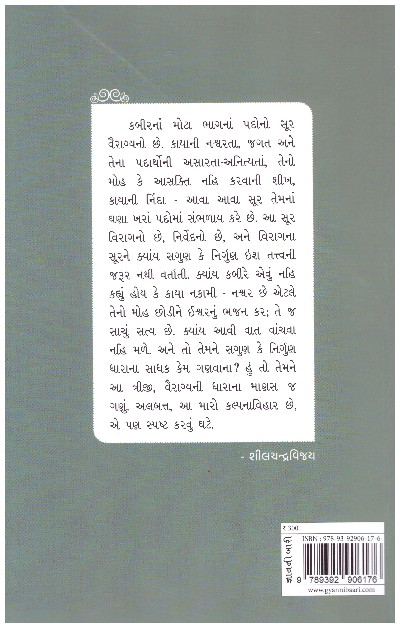 કબીરનાં મોટા ભાગનાં પદોનો સૂર
વૈરાગ્યનો છે. કાયાની નશ્વરતા, જગત અને
તેના પદાર્થોની અસારતા-અનિત્યતા, તેનો
મોહ કે આસક્તિ નહિ કરવાની શીખ,
કાયાની નિંદા - આવા આવા સૂર તેમનાં
ઘણા ખરાં પદોમાં સંભળાય કરે છે. આ સૂર
વિરાગનો છે, નિર્વેદનો છે, અને વિરાગના
સૂરને ક્યાંય સગુણ કે નિર્ગુણ ઇશ તત્ત્વની
જરૂર નથી વર્તાતી. ક્યાંય કબીરે એવું નહિ
કહ્યું હોય કે કાયા નકામી - નશ્વર છે એટલે
તેનો મોહ છોડીને ઈશ્વરનું ભજન કર; તે જ
સાચું સત્વ છે. ક્યાંય આવી વાત વાંચવા
નહિ મળે. અને તો તેમને સગુણ કે નિર્ગુણ
ધારાના સાધક કેમ ગણવાના? હું તો તેમને
આ ત્રીજી, વૈરાગ્યની ધારાના માણસ જ
ગણું. અલબત્ત, આ મારો કલ્પનાવિહાર છે,
એ પણ સ્પષ્ટ કરવું ઘટે.
- શીલચન્દ્રવિજય
₹ 300
જ્ઞાનની બારી
ISBN : 978-93-92906-17-6
9 789392 906176
www.gyannibaari.com